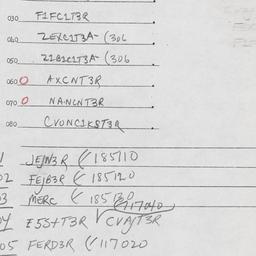 030 F1FC1T3R
040 ZEXC1T3A- (306
050 Z1B1C1T3A- (306
060 AXCNT3R
070 NANCNT3R
080 CVONC1KST3R
1 JEJN3R ( 185110
02 FEJB3R ( 185120
03 MERC ( 185130
117040
04 ESST3R CVAJT3R
05 FERD3R ( 117020